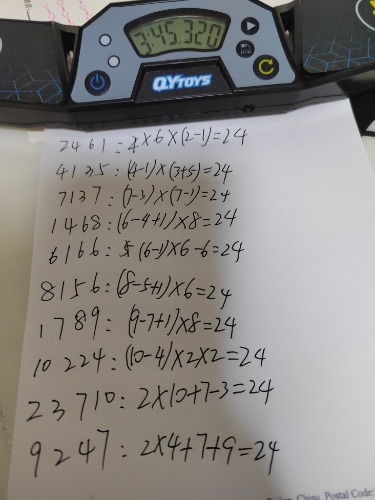 3:45.320
QYTOYS
2461:4×6×(2-1)=24
4135:(4-1)×(3+5)=24
7137:(7-3)×(7-1)=24
1468:(6-4+1)×8=24
6166:(6-1)×6-6=24
8156:(8-5+1)×6=24
1789:(9-7+1)×8=24
10224:(10-4)×2×2=24
23710:2×10+7-3=24
9247:2×4+7+9=24
China, Postal Code: